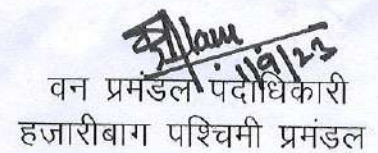 1/9/23
वन प्रमंडल पदाधिकारी
हजारीबाग पश्चिमी प्रमंडल